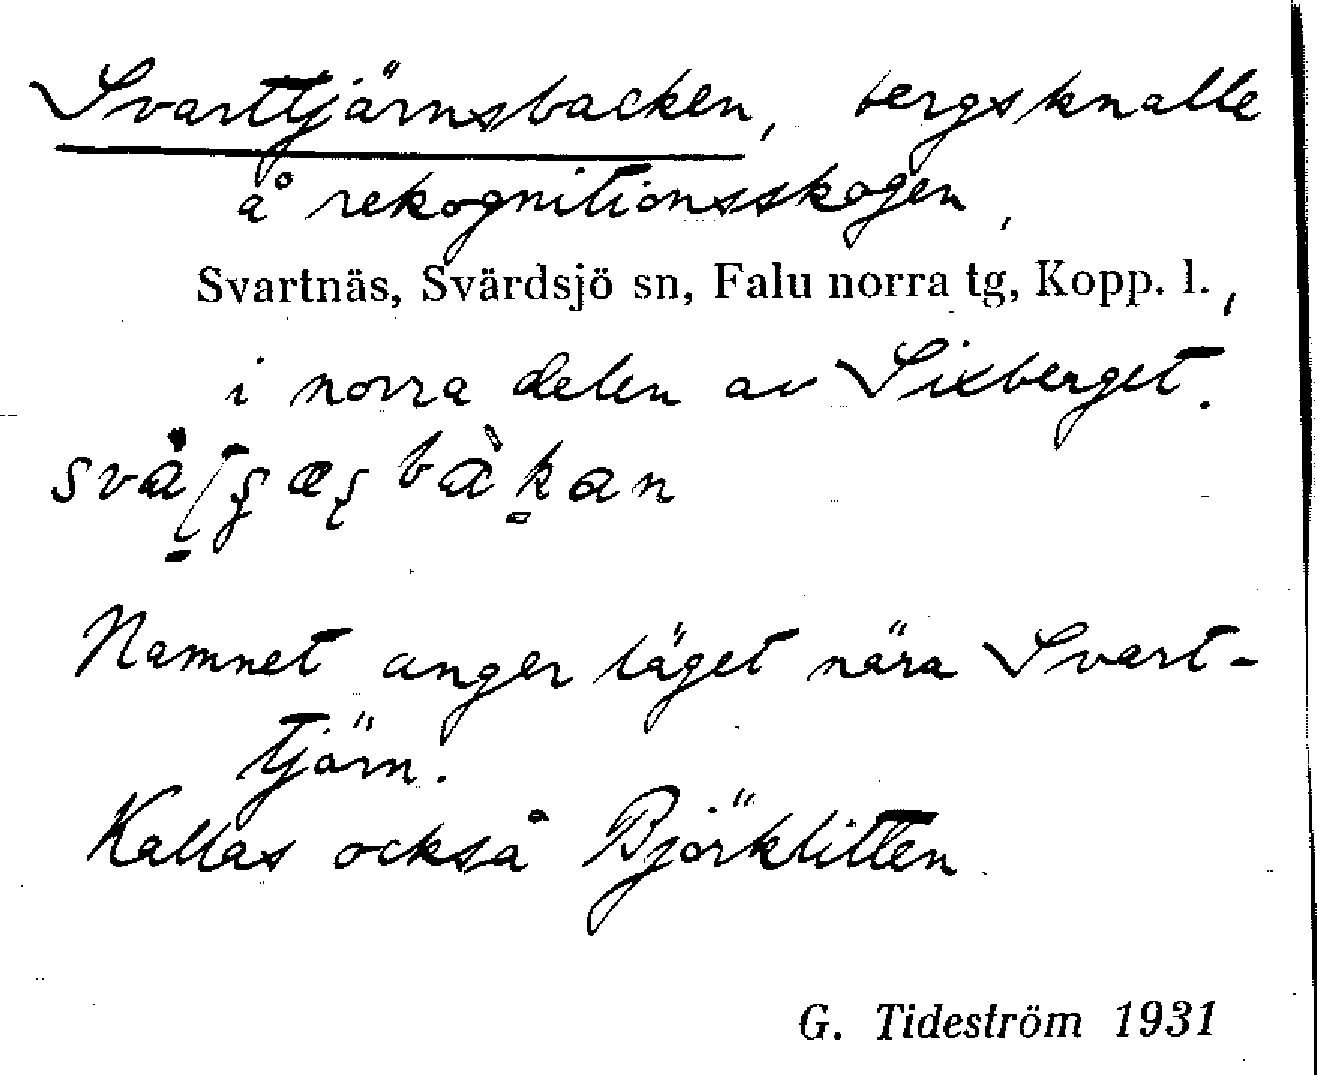 Svarttjärnsbacken, bergsknalle
å rekognitionsskogen,
Svartnäs, Svärdsjö sn, Falu norra tg, Kopp. l.,
i norra delen av Lixberget.
Namnet anger läget nära Svart-
tjärn.
Kallas också Björklitten
G. Tideström 1931